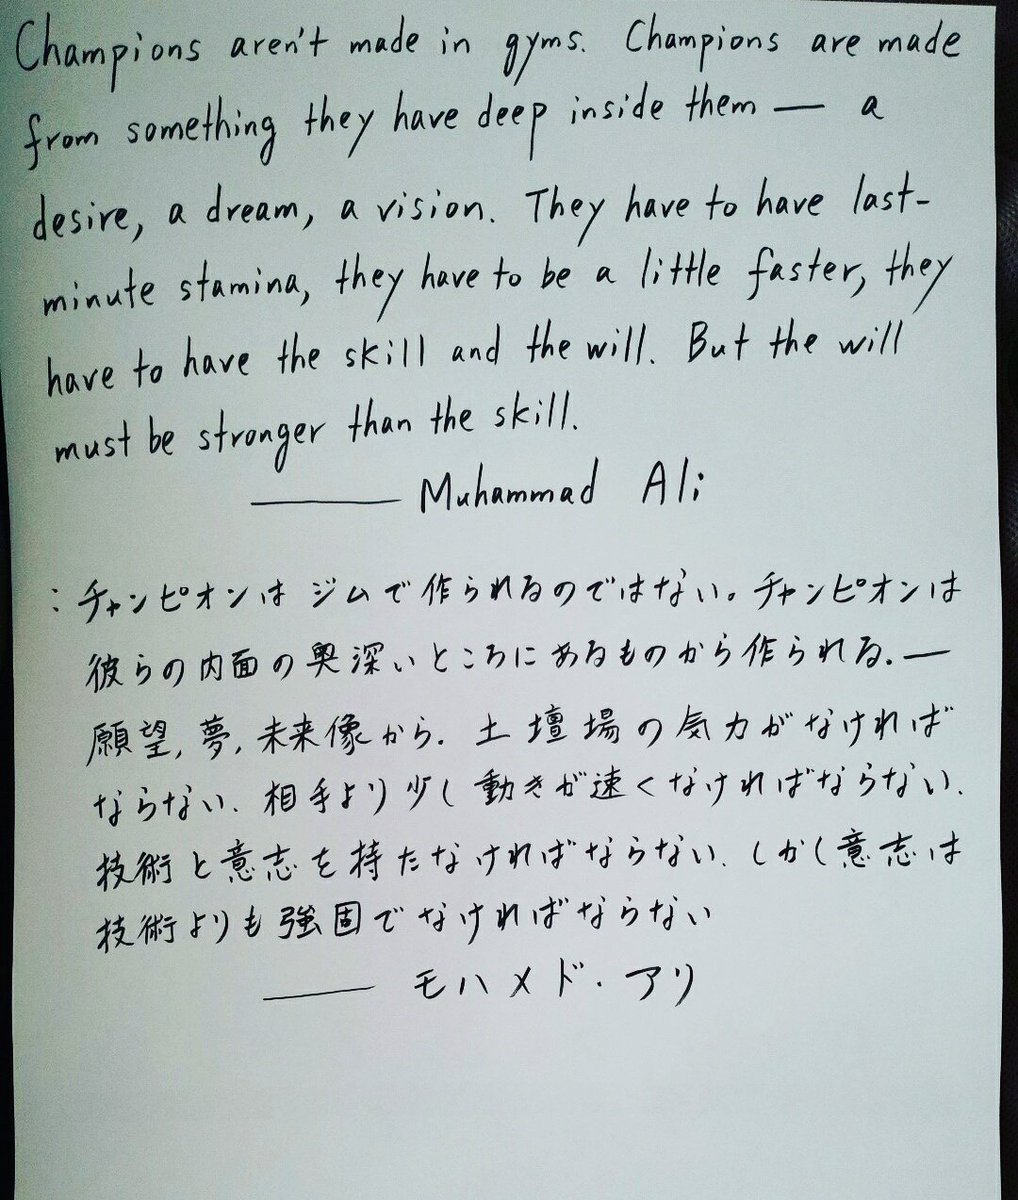 Champions aren't made in gyms. Champions are made
from something they have deep inside them — a
desire, a dream, a vision. They have to have last-
minute stamina, they have to be a little faster, they
have to have the skill and the will. But the will
must be stronger than the skill.
—— Muhammad Ali
: チャンピオンは ジムで作られるのではない。チャンピオンは
彼らの内面の奥深いところにあるものから作られる. —
願望, 夢, 未来像から. 土壇場の気力がなければ
ならない. 相手より少し動きが速くなければならない.
技術と意志を持たなければならない. しかし意志は
技術よりも強固でなければならない
—— モハメド・アリ